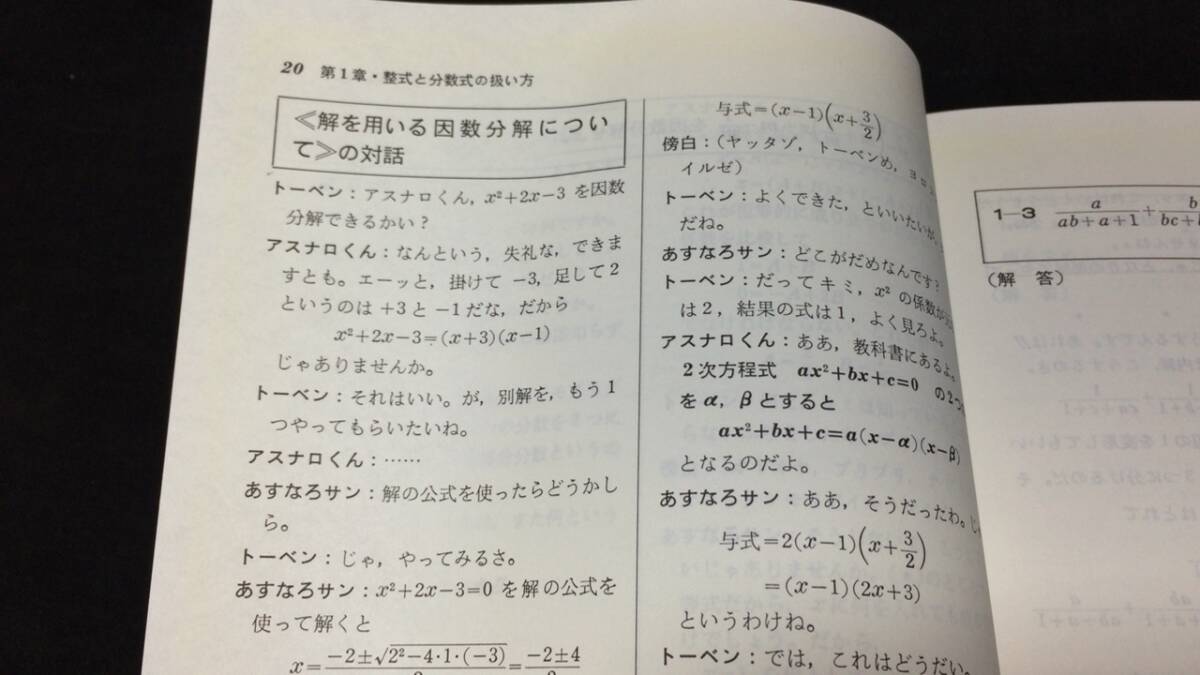 20 第1章・整式と分数式の扱い方
≪解を用いる因数分解につい
て≫の対話
トーベン：アスナロくん，x²+2x−3 を因数
分解できるかい？
アスナロくん：なんという，失礼な，できま
すとも。エーッと，掛けて −3，足して 2
というのは +3 と −1 だな，だから
x²+2x−3=(x+3)(x−1)
じゃありませんか。
トーベン：それはいい。が，別解を，もう 1
つやってもらいたいね。
アスナロくん：……
あすなろサン：解の公式を使ったらどうかし
ら。
トーベン：じゃ，やってみるさ。
あすなろサン：x²+2x−3=0 を解の公式を
使って解くと
x=−2±√2²−4・1・(−3)/2=−2±4/2
与式=(x−1)(x+3/2)
傍白：(ヤッタゾ，トーベンめ，
イルゼ)
トーベン：よくできた，といいたいが，
だね。
あすなろサン：どこがだめなんです？
トーベン：だってキミ，x² の係数が
は 2，結果の式は 1，よく見ろよ。
アスナロくん：ああ，教科書にあるよ。
2 次方程式 ax²+bx+c=0 の 2つ
を α，β とすると
ax²+bx+c=a(x−α)(x−β)
となるのだよ。
あすなろサン：ああ，そうだったわ。
与式=2(x−1)(x+3/2)
=(x−1)(2x+3)
というわけね。
トーベン：では，これはどうだい。
1—3 a/ab+a+1+b/bc+
(解 答)